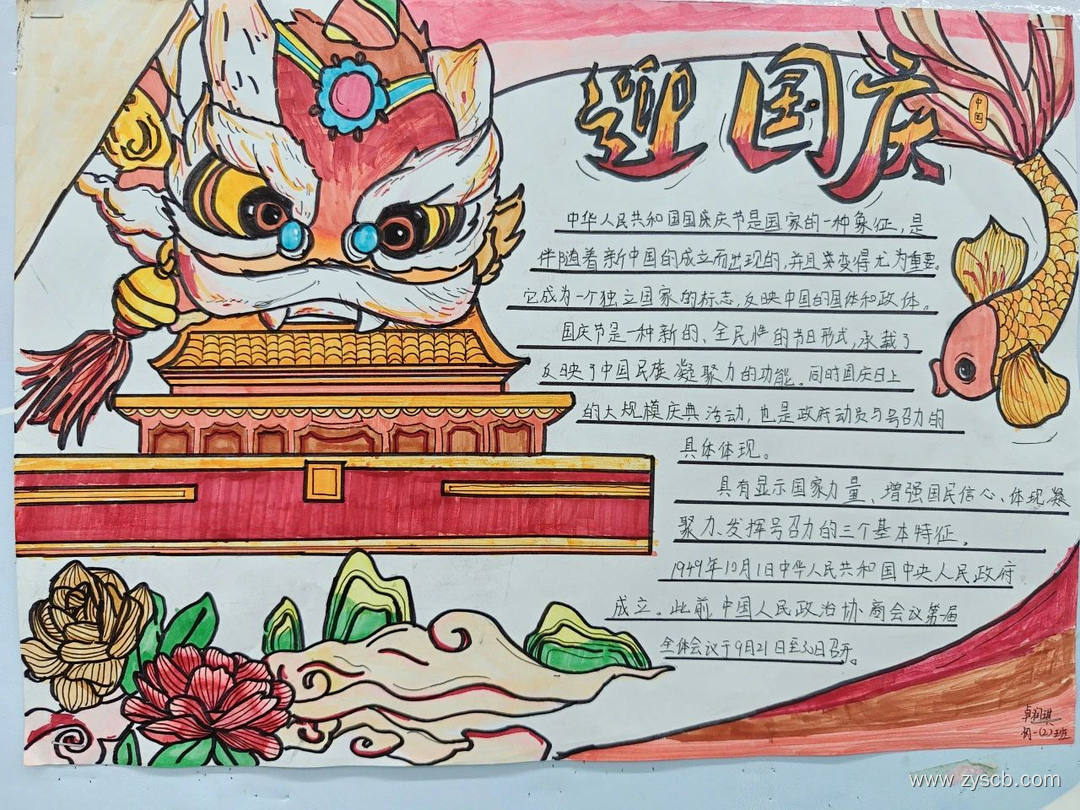 迎国庆
中国
中华人民共和国国庆庆节是国家的一种象征,是
伴随着新中国的成立而出现的,并且变得尤为重要。
它成为一个独立国家的标志,反映中国的国体和政体。
国庆节是一种新的、全民性的节日形式,承载了
反映了中国民族凝聚力的功能。同时国庆日上
的大规模庆典活动,也是政府动员与号召力的
具体体现。
具有显示国家力量、增强国民信心、体现凝
聚力、发挥号召力的三个基本特征。
1949年10月1日中华人民共和国中央人民政府
成立。此前,中国人民政治协商会议第一届
全体会议于9月21日至30日召开。
初一(2)班
www.zyscb.com